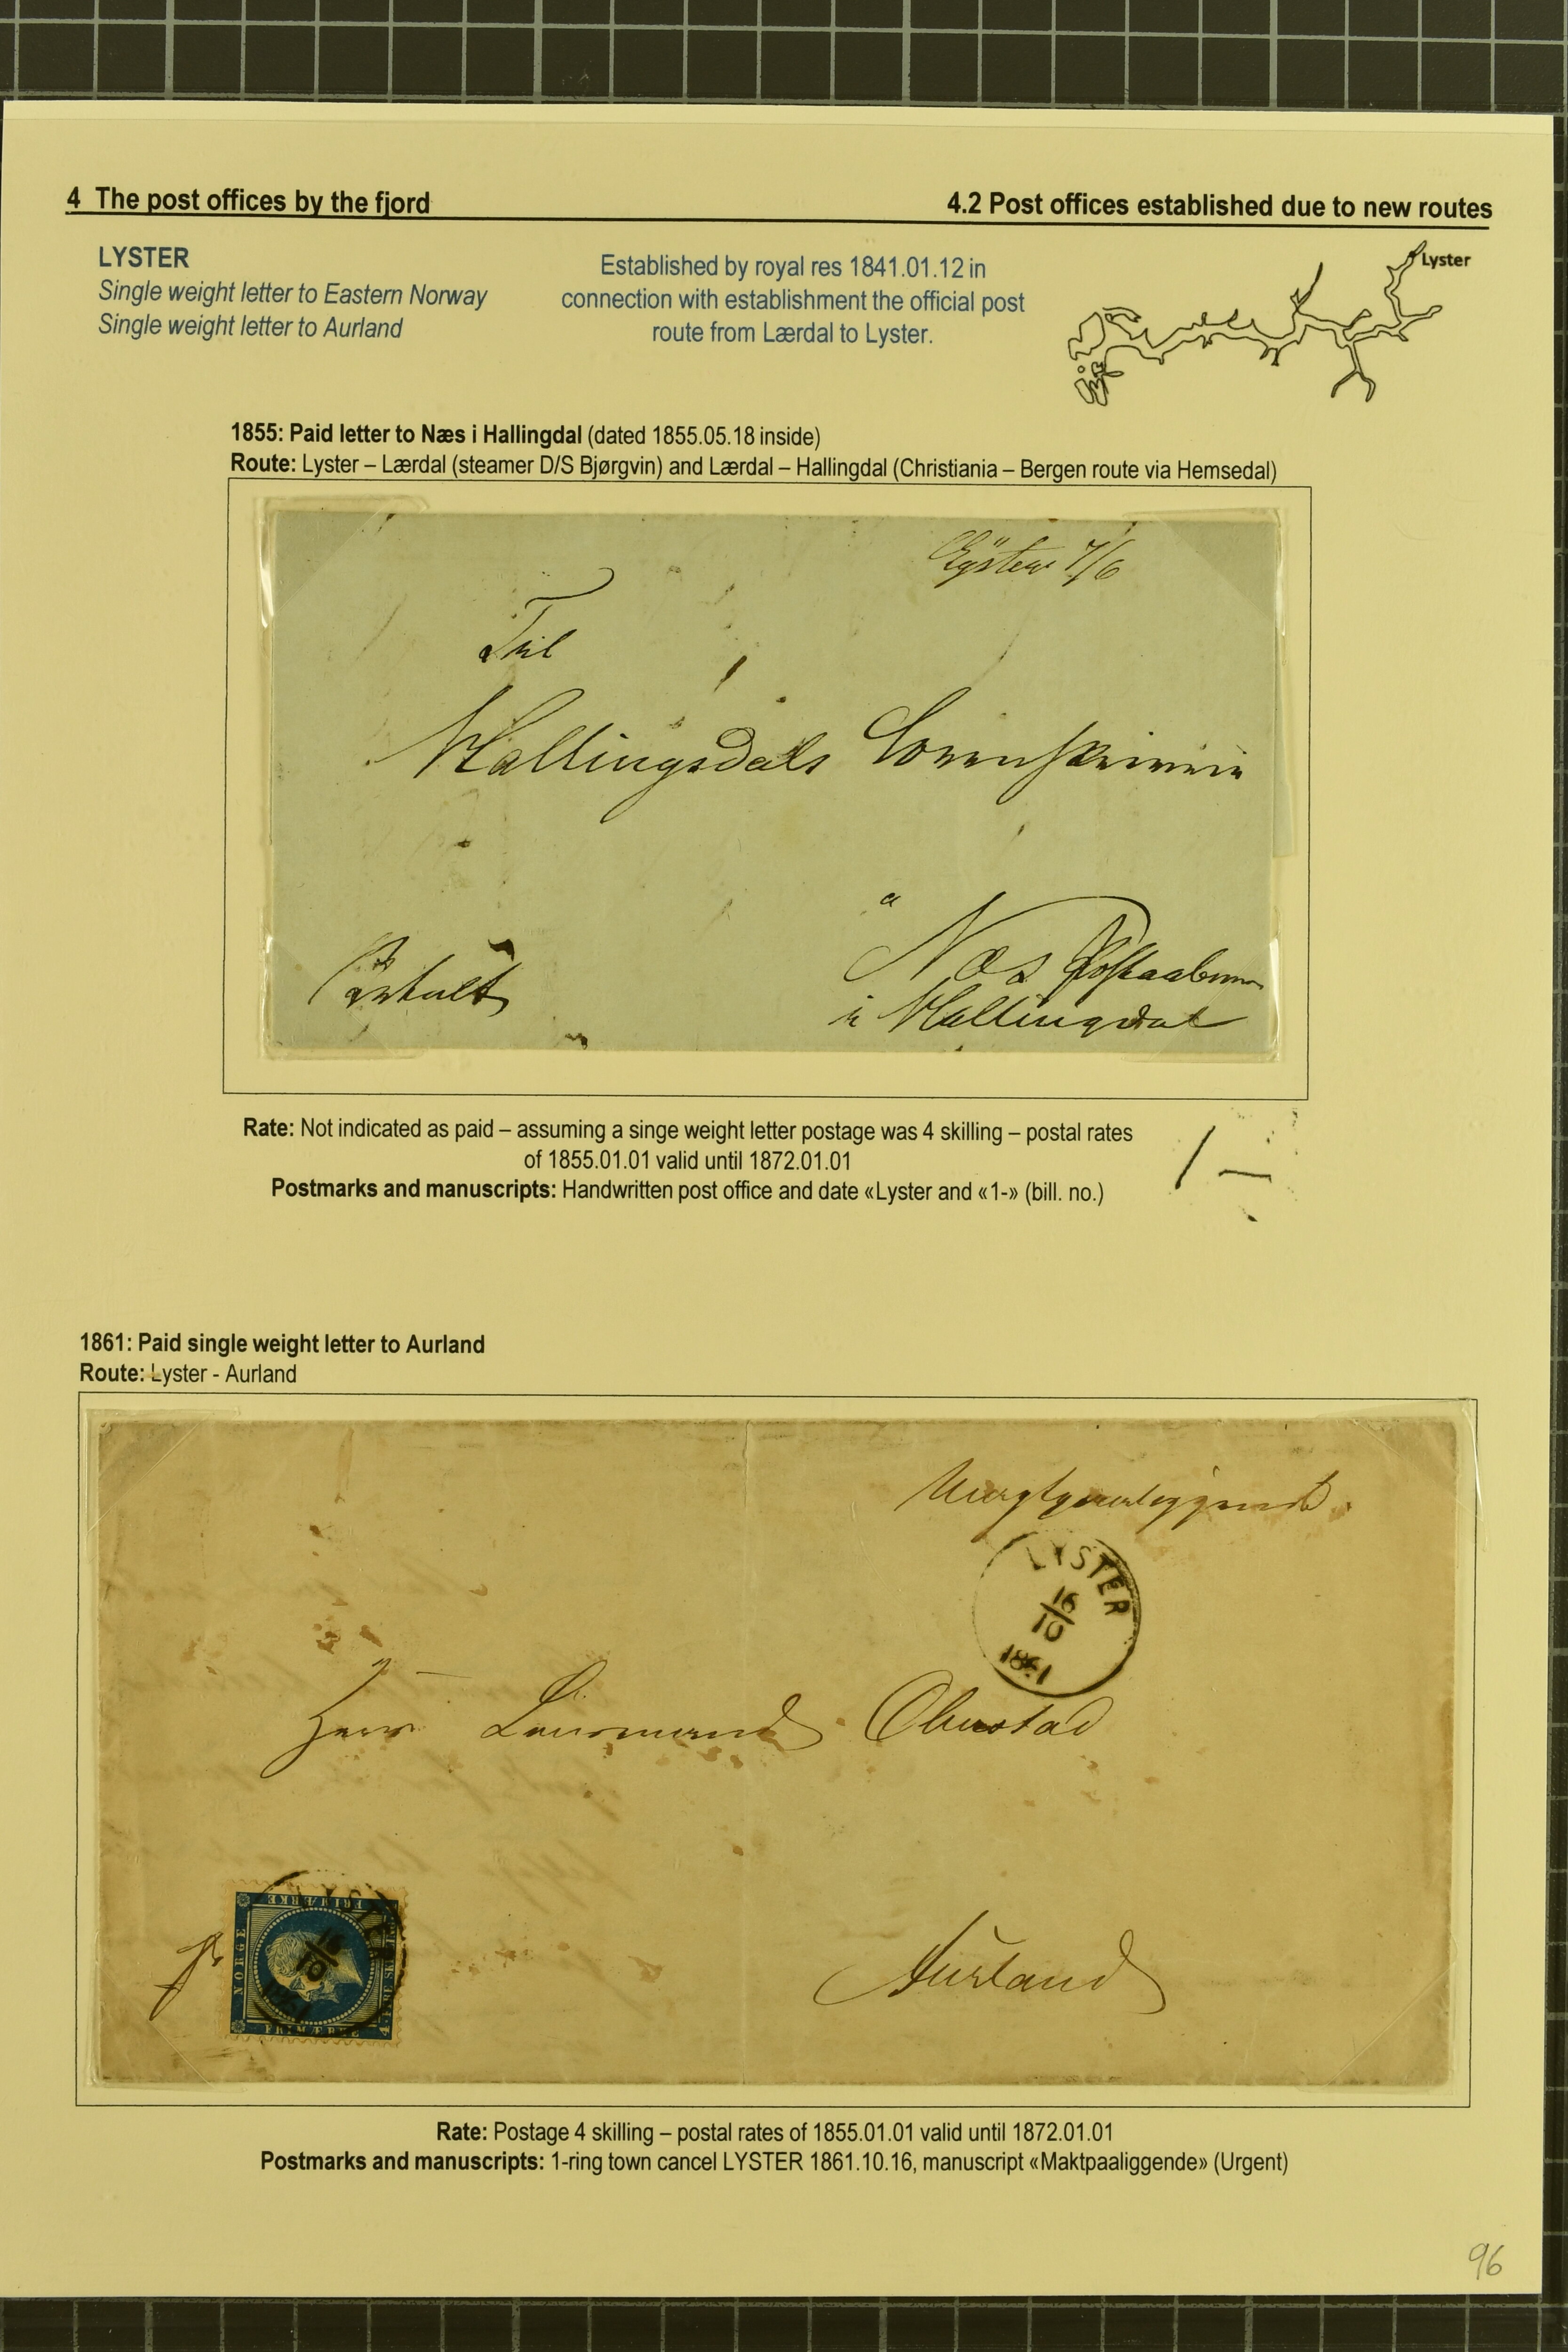 4 The post offices by the fjord
4.2 Post offices established due to new routes
LYSTER
Single weight letter to Eastern Norway
Single weight letter to Aurland
Established by royal res 1841.01.12 in
connection with establishment the official post
route from Lærdal to Lyster.
Lyster
1855: Paid letter to Næs i Hallingdal (dated 1855.05.18 inside)
Route: Lyster – Lærdal (steamer D/S Bjørgvin) and Lærdal – Hallingdal (Christiania – Bergen route via Hemsedal)
Lÿster 7/6
Til
Hallingsdals Sorenskriveri
a
Næs Postaabneri
i Hallingdal
Betalt
Rate: Not indicated as paid – assuming a singe weight letter postage was 4 skilling – postal rates
of 1855.01.01 valid until 1872.01.01
Postmarks and manuscripts: Handwritten post office and date «Lyster and «1-» (bill. no.)
1-
1861: Paid single weight letter to Aurland
Route: Lyster - Aurland
LYSTER
16
10
1861
Herr Lensmand Ohnstad
Aurland
LYSTER
16
10
1861
FRIMÆRKE
NORGE
FRIMÆRKE
Rate: Postage 4 skilling – postal rates of 1855.01.01 valid until 1872.01.01
Postmarks and manuscripts: 1-ring town cancel LYSTER 1861.10.16, manuscript «Maktpaaliggende» (Urgent)
96